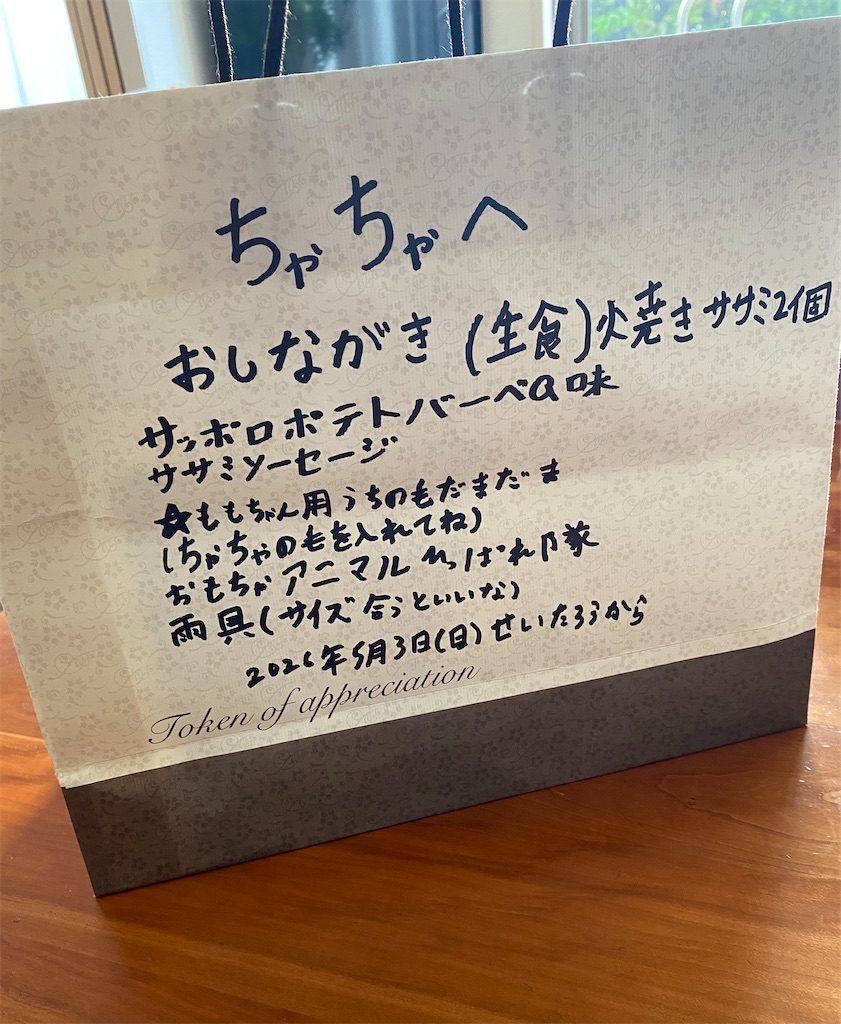 ちゃちゃへ
おしながき (生食)焼きササミ2個
サッポロポテトバーベQ味
ササミソーセージ
★ももちゃん用うちのもだまだま
(ちゃちゃのもを入れてね)
おもちゃアニマル
雨具(サイズ合うといいな)
2026年5月3日(日)せいたろうから
Token of appreciation